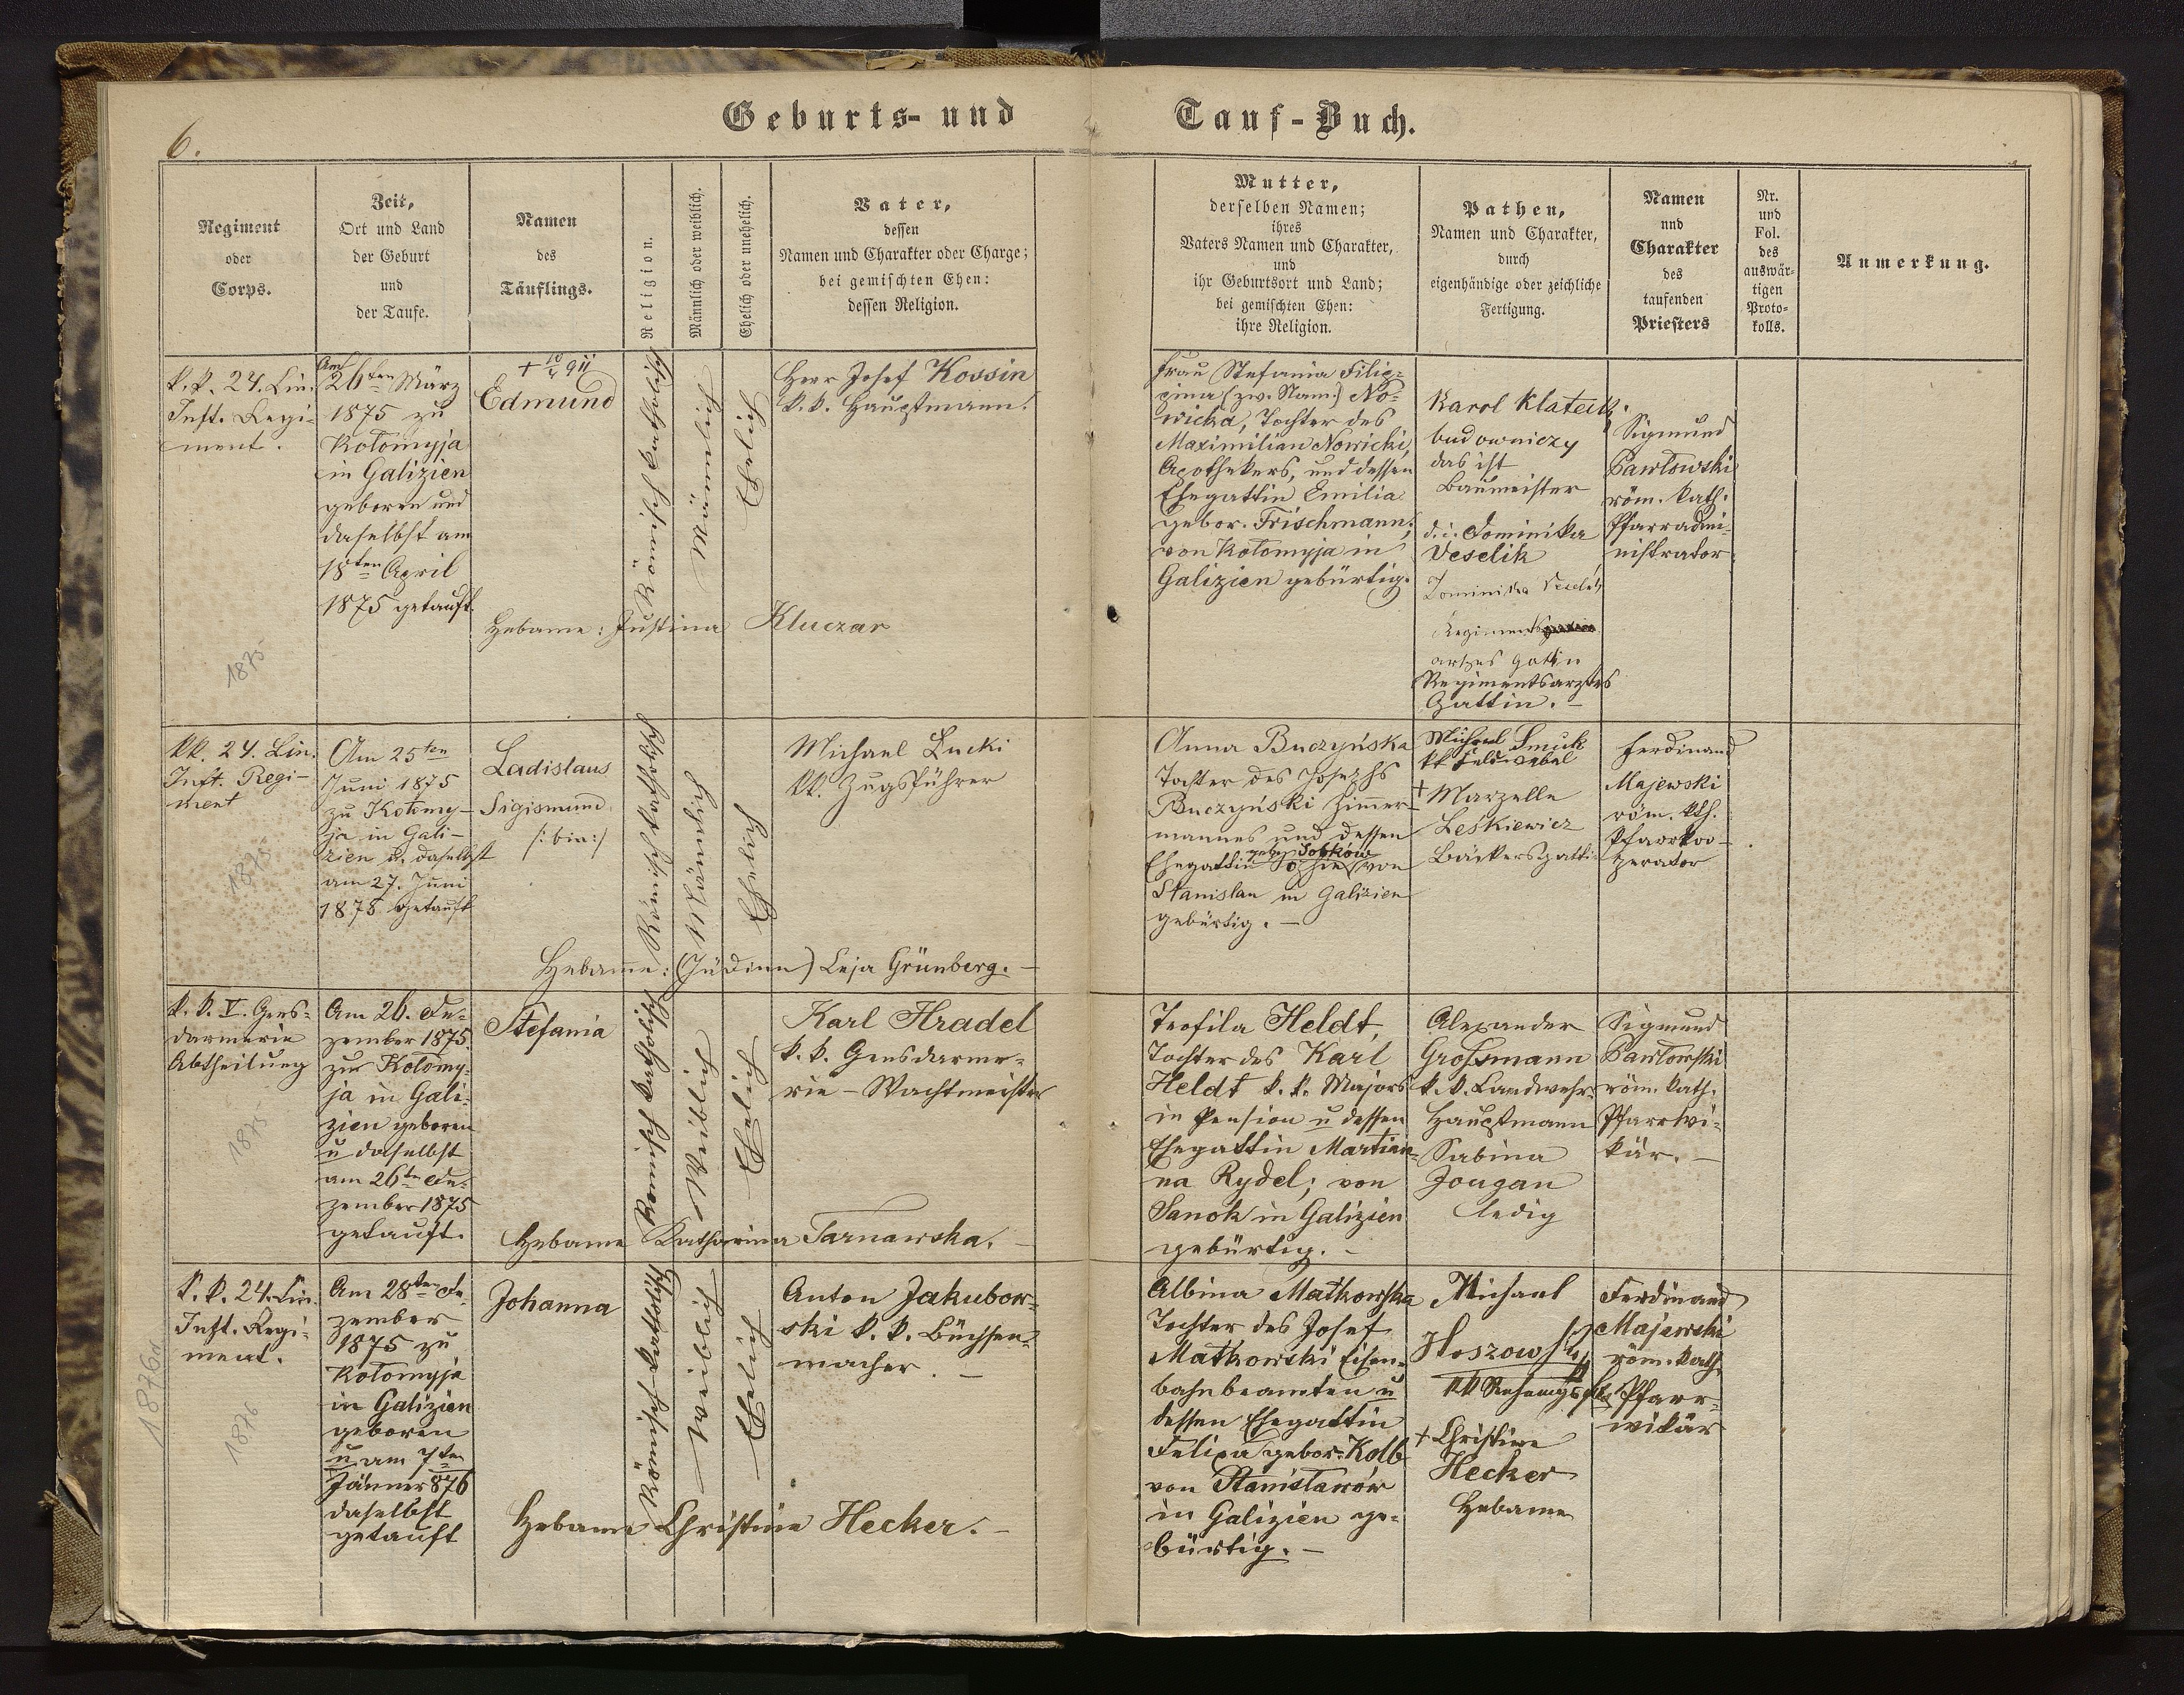 Geburts- und Tauf-Buch.
6.
Regiment
oder
Corps.
Zeit,
Ort und Land
der Geburt
und
der Taufe.
Namen
des
Täuflings.
Religion.
Männlich oder weiblich.
Ehelich oder unehelich.
Vater,
dessen
Namen und Charakter oder Charge;
bei gemischten Ehen:
dessen Religion.
Mutter,
derselben Namen;
ihres
Vaters Namen und Charakter,
und
ihr Geburtsort und Land;
bei gemischten Ehen:
ihre Religion.
Pathen,
Namen und Charakter,
durch
eigenhändige oder zeichliche
Fertigung.
Namen
und
Charakter
des
taufenden
Priesters
Nr.
und
Fol.
des
auswär-
tigen
Proto-
kolls.
Anmerkung.
k.k. 24. Lin.
Inft. Regi-
ment.
1875
Am
26ten März
1875 zu
Kołomyja
in Galizien
geboren und
daselbst am
18ten April
1875 getauft.
+ 10/4 911
Edmund
Römisch katholisch
Männlich
Ehelich
Herr Josef Kossin
k.k. Hauptmann.
Hebame: Justina Kluczar
Frau Stefania Filip-
pina (zw. Nam.) No-
wicka, Tochter des
Maximilian Nowicki,
Apothekers, und dessen
Ehegattin Emilia
gebor. Frischmann,
von Kołomyja in
Galizien gebürtig.
Karol Klateck
budowniczy
das ist
Baumeister
d.i. Dominika
Veselik
Regiments
arztes Gattin
Regimentsarztes
Gattin. –
Sigmund
Pawłowski
röm. kath.
Pfarradmi-
nistrator
kk. 24. Lin.
Inft. Regi-
ment
1875
Am 25ten
Juni 1875
zu Kołomy-
ja in Gali-
zien u. daselbst
am 27. Juni
1875 getauft
Ladislaus
Sigismund
/: bin :/
Römisch katholisch
Männlich
Ehelich
Michael Lucki
kk. Zugsführer
Hebamme: (Jüdinn) Leja Grünberg. –
Anna Buczyńska
Tochter des Josephs
Buczyński Zimmer-
mannes und dessen
geb. Sobków
Ehegattin Sophie von
Stanislau in Galizien
gebürtig. –
Michael Smuk
kk Feldwebel
+ Marzelle
Leśkiewicz
Bäckersgattin
Ferdinand
Majewski
röm. kth.
Pfarrkoo-
perator
k.k. V. Gens-
darmerie
Abtheilung
1875
Am 26. De-
zember 1875.
zu Kołomy-
ja in Gali-
zien geboren
u daselbst
am 26ten De-
zember 1875
getauft.
Stefania
Römisch katholisch
Weiblich
Ehelich
Karl Hradel
k.k. Gensdarme-
rie – Wachtmeister
Hebame Katharina Tarnawska. –
Teofila Heldt,
Tochter des Karl
Heldt k.k. Majors
in Pension u dessen
Ehegattin Martian-
na Rydel; von
Sanok in Galizien
gebürtig. –
Alexander
Großmann
k.k. Landwehr-
Hauptmann
Sabina
Jougan
ledig
Sigmund
Pawłowski
röm. kath.
Pfarrvi-
kär. –
k.k. 24. Lin.
Inft. Regi-
ment.
1876
1876
Am 28ten De-
zember
1875 zu
Kołomyja
in Galizien
geboren
u am 7ten
Jänner 876
daselbst
getauft
Johanna
Römisch katholisch
Weiblich
Ehelich
Anton Jakubow-
ski k.k. Büchsen-
macher. –
Hebame Christine Hecker. –
Albina Matkowska
Tochter des Josef
Matkowski Eisen-
bahnbeamten u
dessen Ehegattin
Felixa gebor. Kolb
von Stanisławów
in Galizien ge-
bürtig. –
Michael
+ Christine
Hecker
Hebame
Ferdinand
Majewski
röm. kath.
Pfarr-
vikär